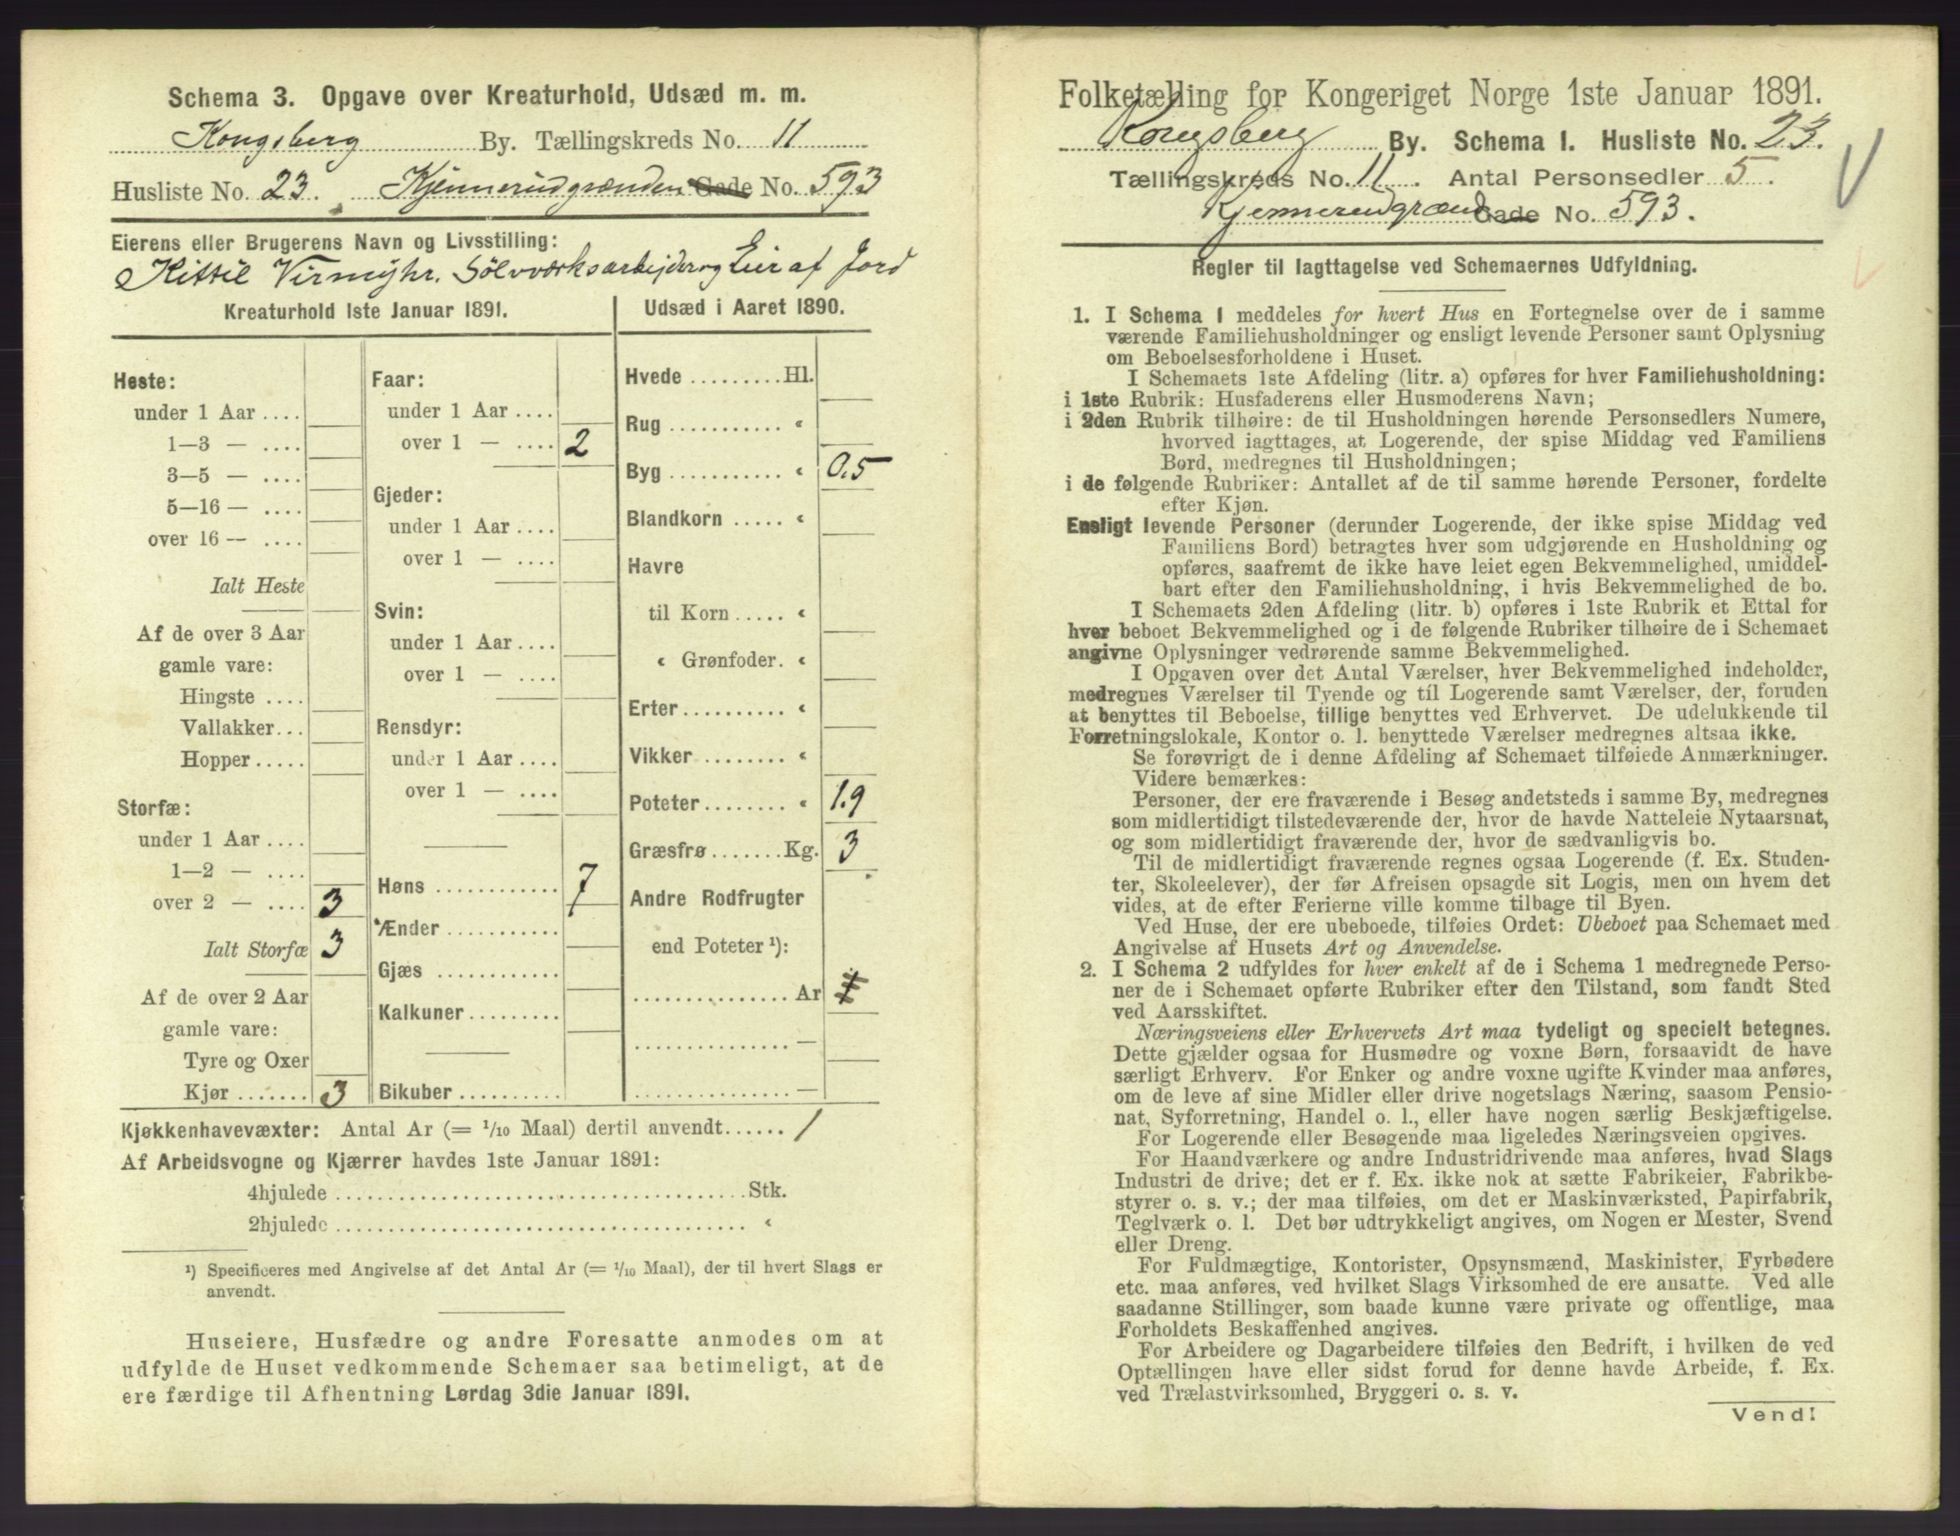 Schema 3. Opgave over Kreaturhold, Udsæd m. m.
Kongsberg By. Tællingskreds No. 11
Husliste No. 23. Kjennerudgrænden Gade No. 593
Eierens eller Brugerens Navn og Livsstilling:
Kittil Virmyhr. Sølvværksarbejder og Eier af Jord
Kreaturhold 1ste Januar 1891.
Heste:
under 1 Aar ....
1—3 — ....
3—5 — ....
5—16 — ....
over 16 — ....
Ialt Heste
Af de over 3 Aar
gamle vare:
Hingste ....
Vallakker...
Hopper .....
Storfæ:
under 1 Aar ....
1—2 — ....
over 2 — .... 3
Ialt Storfæ 3
Af de over 2 Aar
gamle vare:
Tyre og Oxer
Kjør ....... 3
Faar:
under 1 Aar ....
over 1 — .... 2
Gjeder:
under 1 Aar ....
over 1 — ....
Svin:
under 1 Aar ....
over 1 — ....
Rensdyr:
under 1 Aar ....
over 1 — ....
Høns ............ 7
Ænder ...........
Gjæs ............
Kalkuner.........
Bikuber ..........
Udsæd i Aaret 1890.
Hvede .........Hl.
Rug ........... «
Byg ........... « 0.5
Blandkorn ..... «
Havre
til Korn ..... «
« Grønfoder. «
Erter.......... «
Vikker ........ «
Poteter........ « 1.9
Græsfrø.......Kg. 3
Andre Rodfrugter
end Poteter ¹):
............... Ar
............... —
............... —
Kjøkkenhavevæxter: Antal Ar (= 1/10 Maal) dertil anvendt...... 1
Af Arbeidsvogne og Kjærrer havdes 1ste Januar 1891:
4hjulede ........................................Stk.
2hjulede ........................................ «
¹) Specificeres med Angivelse af det Antal Ar (= 1/10 Maal), der til hvert Slags er
anvendt.
Huseiere, Husfædre og andre Foresatte anmodes om at
udfylde de Huset vedkommende Schemaer saa betimeligt, at de
ere færdige til Afhentning Lørdag 3die Januar 1891.
Folketælling for Kongeriget Norge 1ste Januar 1891.
Kongsberg By. Schema 1. Husliste No. 23.
Tællingskreds No. 11. Antal Personsedler 5.
Kjennerudgrænd Gade No. 593.
Regler til Iagttagelse ved Schemaernes Udfyldning.
1. I Schema 1 meddeles for hvert Hus en Fortegnelse over de i samme
værende Familiehusholdninger og ensligt levende Personer samt Oplysning
om Beboelsesforholdene i Huset.
I Schemaets 1ste Afdeling (litr. a) opføres for hver Familiehusholdning:
i 1ste Rubrik: Husfaderens eller Husmoderens Navn;
i 2den Rubrik tilhøire: de til Husholdningen hørende Personsedlers Numere,
hvorved iagttages, at Logerende, der spise Middag ved Familiens
Bord, medregnes til Husholdningen;
i de følgende Rubriker: Antallet af de til samme hørende Personer, fordelte
efter Kjøn.
Ensligt levende Personer (derunder Logerende, der ikke spise Middag ved
Familiens Bord) betragtes hver som udgjørende en Husholdning og
opføres, saafremt de ikke have leiet egen Bekvemmelighed, umiddel-
bart efter den Familiehusholdning, i hvis Bekvemmelighed de bo.
I Schemaets 2den Afdeling (litr. b) opføres i 1ste Rubrik et Ettal for
hver beboet Bekvemmelighed og i de følgende Rubriker tilhøire de i Schemaet
angivne Oplysninger vedrørende samme Bekvemmelighed.
I Opgaven over det Antal Værelser, hver Bekvemmelighed indeholder,
medregnes Værelser til Tyende og til Logerende samt Værelser, der, foruden
at benyttes til Beboelse, tillige benyttes ved Erhvervet. De udelukkende til
Forretningslokale, Kontor o. l. benyttede Værelser medregnes altsaa ikke.
Se forøvrigt de i denne Afdeling af Schemaet tilføiede Anmærkninger.
Videre bemærkes:
Personer, der ere fraværende i Besøg andetsteds i samme By, medregnes
som midlertidigt tilstedeværende der, hvor de havde Natteleie Nytaarsnat,
og som midlertidigt fraværende der, hvor de sædvanligvis bo.
Til de midlertidigt fraværende regnes ogsaa Logerende (f. Ex. Studen-
ter, Skoleelever), der før Afreisen opsagde sit Logis, men om hvem det
vides, at de efter Ferierne ville komme tilbage til Byen.
Ved Huse, der ere ubeboede, tilføies Ordet: Ubeboet paa Schemaet med
Angivelse af Husets Art og Anvendelse.
2. I Schema 2 udfyldes for hver enkelt af de i Schema 1 medregnede Perso-
ner de i Schemaet opførte Rubriker efter den Tilstand, som fandt Sted
ved Aarsskiftet.
Næringsveiens eller Erhvervets Art maa tydeligt og specielt betegnes.
Dette gjælder ogsaa for Husmødre og voxne Børn, forsaavidt de have
særligt Erhverv. For Enker og andre voxne ugifte Kvinder maa anføres,
om de leve af sine Midler eller drive nogetslags Næring, saasom Pensio-
nat, Syforretning, Handel o. l., eller have nogen særlig Beskjæftigelse.
For Logerende eller Besøgende maa ligeledes Næringsveien opgives.
For Haandværkere og andre Industridrivende maa anføres, hvad Slags
Industri de drive; det er f. Ex. ikke nok at sætte Fabrikeier, Fabrikbe-
styrer o. s. v.; der maa tilføies, om det er Maskinværksted, Papirfabrik,
Teglværk o. l. Det bør udtrykkeligt angives, om Nogen er Mester, Svend
eller Dreng.
For Fuldmægtige, Kontorister, Opsynsmænd, Maskinister, Fyrbødere
etc. maa anføres, ved hvilket Slags Virksomhed de ere ansatte. Ved alle
saadanne Stillinger, som baade kunne være private og offentlige, maa
Forholdets Beskaffenhed angives.
For Arbeidere og Dagarbeidere tilføies den Bedrift, i hvilken de ved
Optællingen have eller sidst forud for denne havde Arbeide, f. Ex.
ved Trælastvirksomhed, Bryggeri o. s. v.
Vend!